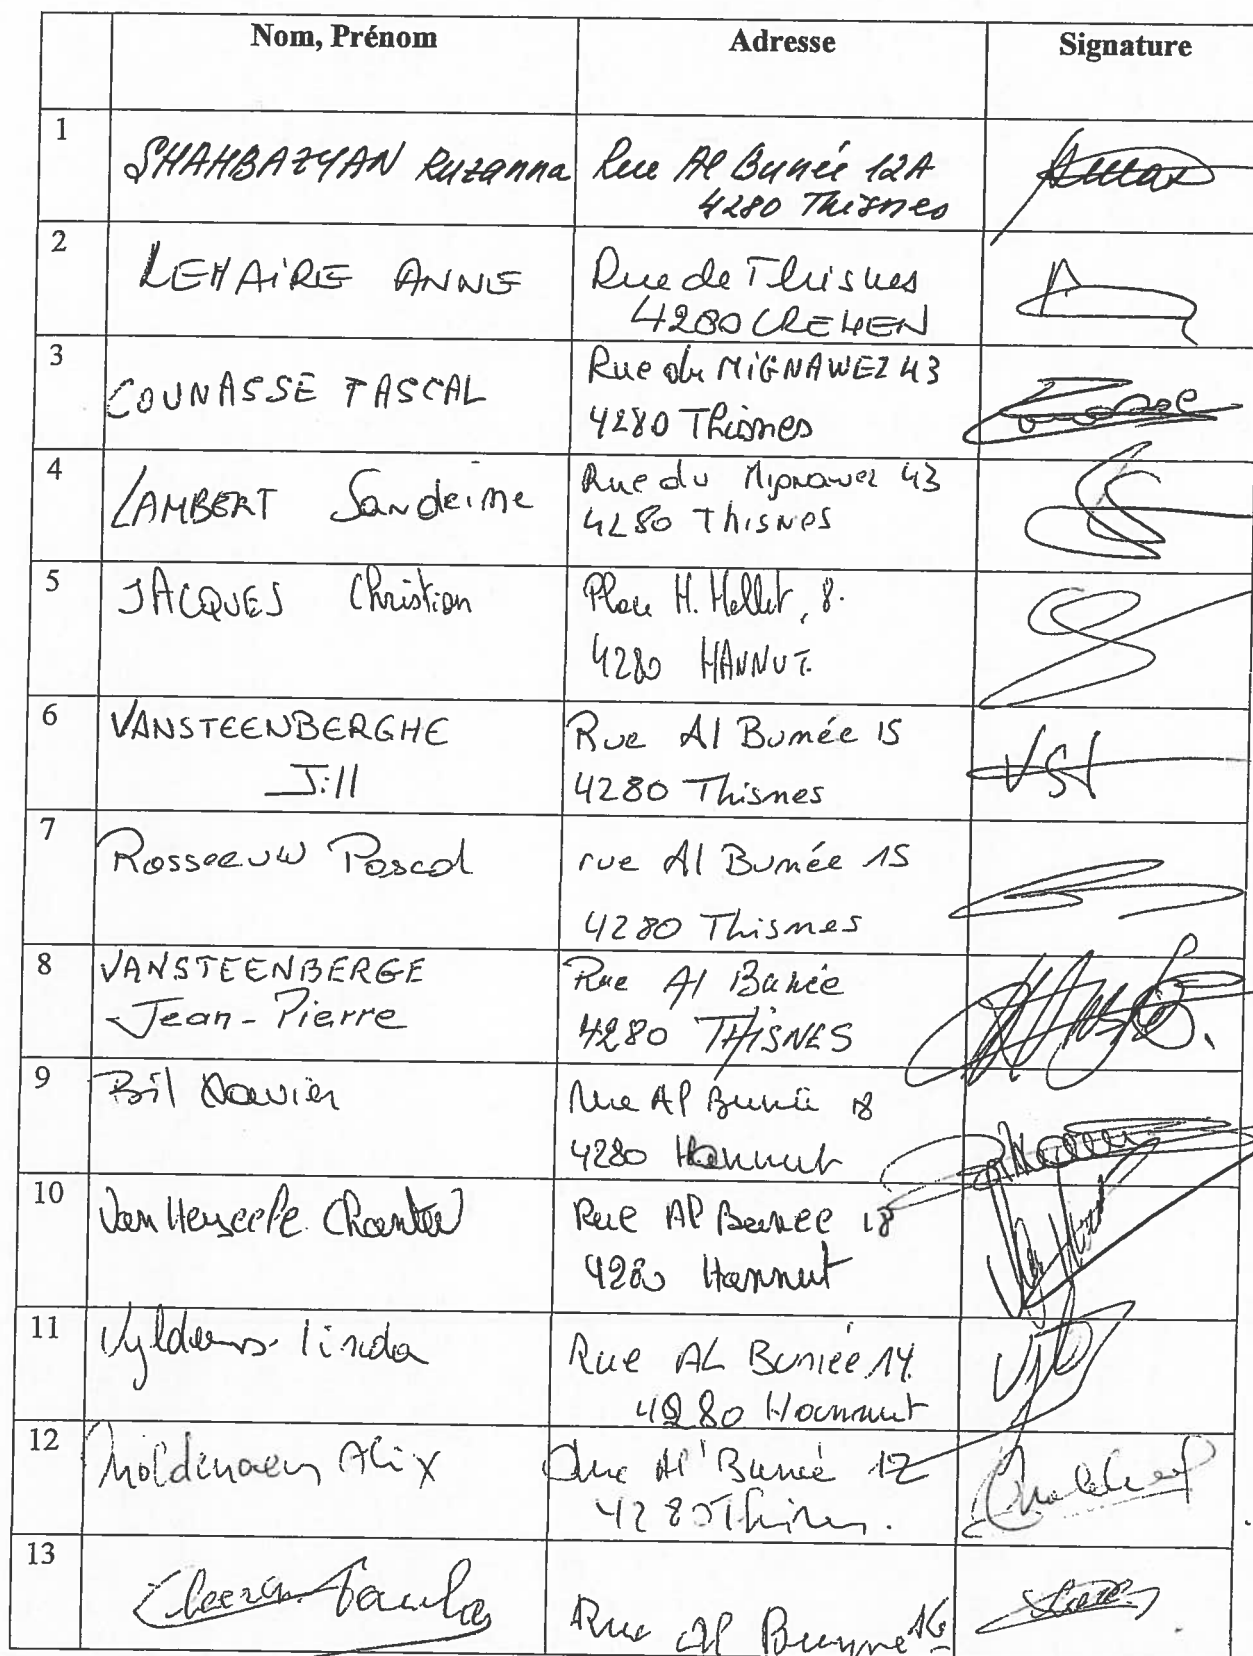 Nom, Prénom Adresse Signature
1 SHAHBAZYAN Ruzanna Rue Al Bunée 12A
4280 Thisnes
2 LEMAIRE ANNE Rue de Thisnes
4280 CREHEN
3 COUNASSE PASCAL Rue du MIGNAWEZ 43
4280 Thisnes
4 LAMBERT Sandrine Rue du Mignawez 43
4280 Thisnes
5 JACQUES Christian Place H. Hallet, 8.
4280 HANNUT.
6 VANSTEENBERGHE Rue Al Bunée 15
Jill 4280 Thisnes
VSJ
7 Rosseeuw Pascal rue Al Bunée 15
4280 Thisnes
8 VANSTEENBERGE Rue Al Bunée
Jean-Pierre 4280 THISNES
9 Bil Xavier Rue Al Bunée 18
4280 Hannut
10 Chantal Rue Al Bunee 18
4280 Hannut
11 Linda Rue AL Buniée 14
4280 Hannut
12 Alix Rue Al' Bunée 12
4280 Thisnes.
13 Rue Al Bunne 16